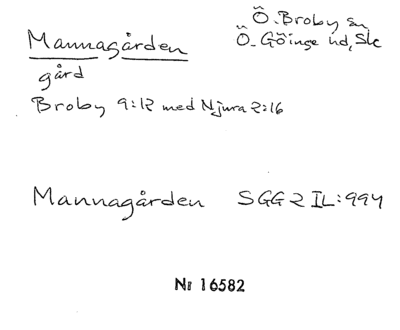 Mannagården
Ö. Broby sn
Ö. Göinge hd, Sk
gård
Broby 9:12 med Njura 2:16
Mannagården SGG 2 IL:994
Nr 16582